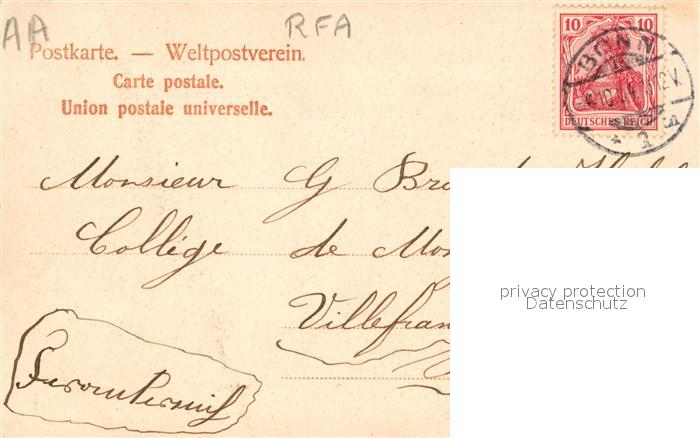 AA
RFA
Postkarte. — Weltpostverein.
Carte postale.
Union postale universelle.
10 10
DEUTSCHES REICH
BONN
Monsieur G Bro
Collége de Mon
Villefran
privacy protection
Datenschutz